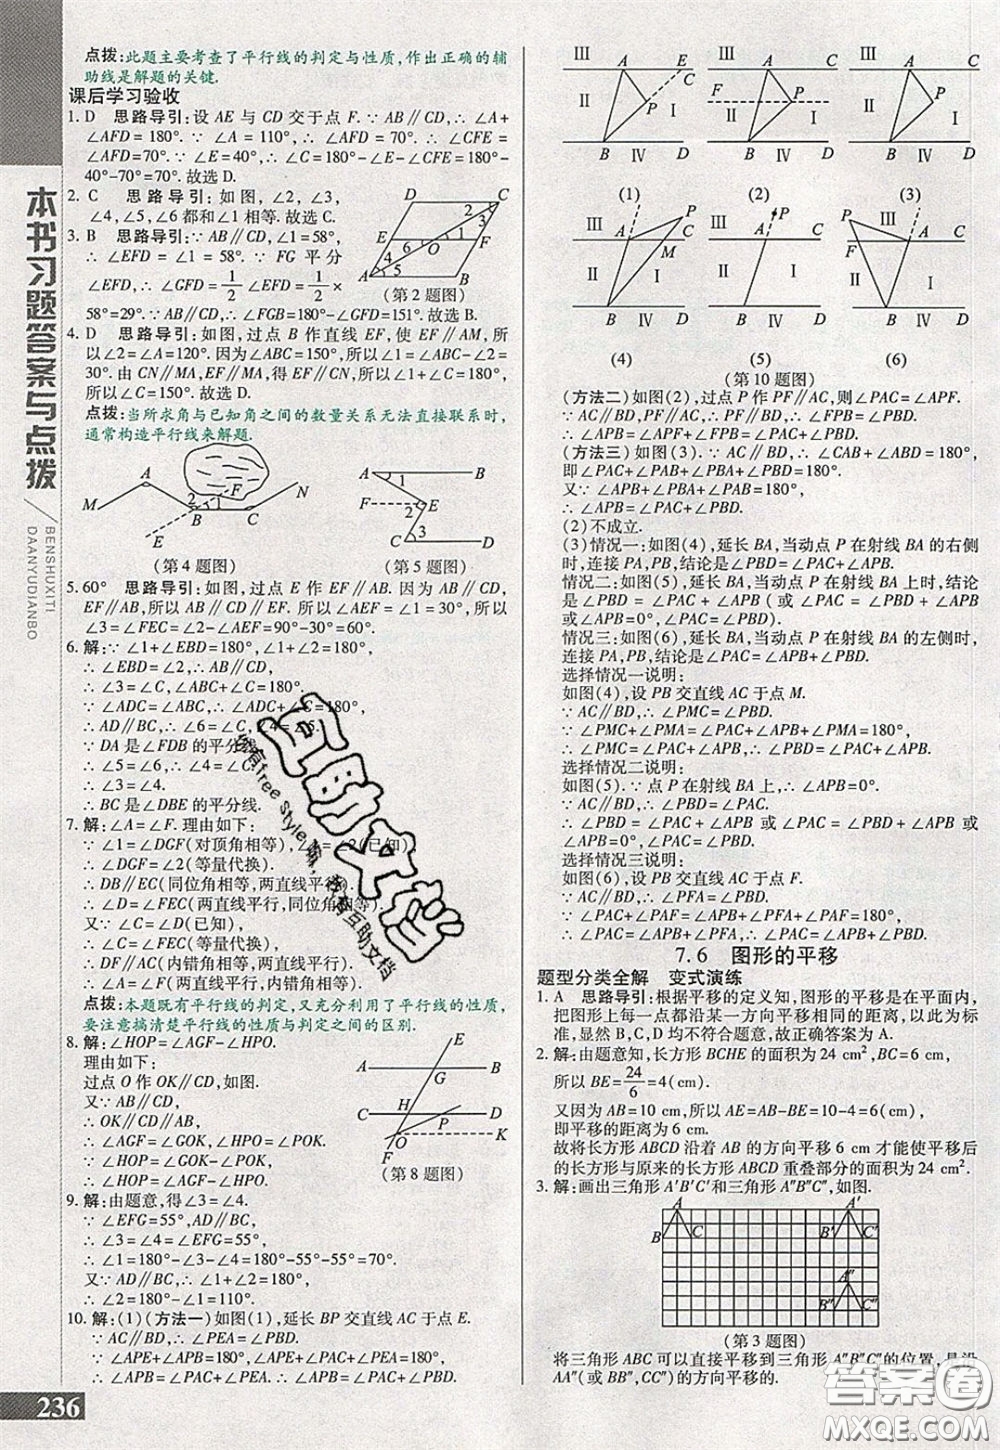 点拨:此题主要考查了平行线的判定与性质,作出正确的辅
助线是解题的关键.
课后学习验收
1. D 思路导引:设 AE 与 CD 交于点 F.∵AB∥CD,∴∠A+
∠AFD=180°.∵∠A=110°,∴∠AFD=70°.∴∠CFE=
∠AFD=70°.∵∠E=40°,∴∠C=180°-∠E-∠CFE=180°-
40°-70°=70°.故选 D.
2. C 思路导引:如图,∠2,∠3,
∠4,∠5,∠6 都和∠1 相等.故选 C.
3. B 思路导引:∵AB∥CD,∠1=58°,
∴∠EFD=∠1=58°.∵FG 平分
∠EFD,∴∠GFD=1/2∠EFD=1/2×
58°=29°.∵AB∥CD,∴∠FGB=180°-∠GFD=151°.故选 B.
(第 2 题图)
4. D 思路导引:如图,过点 B 作直线 EF,使 EF∥AM,所
以∠2=∠A=120°.因为∠ABC=150°,所以∠1=150°-120°=
30°.由 CN∥MA,EF∥MA,得 CN∥EF,所以∠1+∠C=180°,
所以∠C=150°.故选 D.
点拨:当所求角与已知角之间的数量关系无法直接联系时,
通常构造平行线来解题.
(第 4 题图) (第 5 题图)
5. 60° 思路导引:如图,过点 E 作 EF∥AB.因为 AB∥CD,
EF∥AB,所以 AB∥CD∥EF.所以∠1=∠FEA=30°,所以
∠3=∠FEC=∠2-∠FEA=90°-30°=60°.
6. 解:∵∠1+∠EBD=180°,∠1+∠2=180°,
∴∠EBD=∠2,∴AB∥CD,
∴∠3=∠C,∠ABC+∠C=180°.
∵∠ADC=∠ABC,∴∠ADC+∠C=180°,
∴AD∥BC,∴∠6=∠C,∠4=∠5.
∵DA 是∠FDB 的平分线,
∴∠5=∠6,∴∠4=∠C,
∴∠3=∠4.
∴BC 是∠DBE 的平分线.
7. 解:∠A=∠F.理由如下:
∵∠1=∠DGF(对顶角相等),∠1=∠2(已知),
∴∠DGF=∠2(等量代换).
∴DB∥EC(同位角相等,两直线平行).
∴∠D=∠FEC(两直线平行,同位角相等).
又∵∠C=∠D(已知),
∴∠FEC=∠C(等量代换).
∴DF∥AC(内错角相等,两直线平行).
∴∠A=∠F(两直线平行,内错角相等).
点拨:本题既有平行线的判定,又充分利用了平行线的性质,
要注意搞清楚平行线的性质与判定之间的区别.
8. 解:∠HOP=∠AGF-∠HPO.
理由如下:
过点 O 作 OK∥CD,如图.
又∵AB∥CD,
∴OK∥CD∥AB,
∴∠AGF=∠GOK,∠HPO=∠POK.
∵∠HOP=∠GOK-∠POK,
∴∠HOP=∠AGF-∠HPO.
(第 8 题图)
9. 解:由题意,得∠3=∠4.
∵∠EFG=55°,AD∥BC,
∴∠3=∠4=∠EFG=55°,
∴∠1=180°-∠3-∠4=180°-55°-55°=70°.
又∵AD∥BC,∴∠1+∠2=180°,
∴∠2=180°-∠1=110°.
10. 解:(1)(方法一)如图(1),延长 BP 交直线 AC 于点 E.
∵AC∥BD,∴∠PEA=∠PBD.
∵∠APE+∠APB=180°,∠APE+∠PAE+∠PEA=180°,
∴∠APB=∠PAE+∠PEA,∴∠APB=∠PAC+∠PBD.
(1) (2) (3)
(4) (5) (6)
(第 10 题图)
(方法二)如图(2),过点 P 作 PF∥AC,则∠PAC=∠APF.
∵AC∥BD,PF∥AC,∴PF∥BD.∴∠FPB=∠PBD.
∴∠APB=∠APF+∠FPB=∠PAC+∠PBD.
(方法三)如图(3).∵AC∥BD,∴∠CAB+∠ABD=180°,
即∠PAC+∠PAB+∠PBA+∠PBD=180°.
又∵∠APB+∠PBA+∠PAB=180°,
∴∠APB=∠PAC+∠PBD.
(2)不成立.
(3)情况一:如图(4),延长 BA,当动点 P 在射线 BA 的右侧
时,连接 PA,PB,结论是∠PBD=∠PAC+∠APB.
情况二:如图(5),延长 BA,当动点 P 在射线 BA 上时,结论
是∠PBD=∠PAC+∠APB(或∠PAC=∠PBD+∠APB 或
∠APB=0°,∠PAC=∠PBD).
情况三:如图(6),延长 BA,当动点 P 在射线 BA 的左侧时,
连接 PA,PB,结论是∠PAC=∠APB+∠PBD.
选择情况一说明:
如图(4),设 PB 交直线 AC 于点 M.
∵AC∥BD,∴∠PMC=∠PBD.
∵∠PMC+∠PMA=∠PAC+∠APB+∠PMA=180°,
∴∠PMC=∠PAC+∠APB,∴∠PBD=∠PAC+∠APB.
选择情况二说明:
如图(5).∵点 P 在射线 BA 上,∴∠APB=0°.
∵AC∥BD,∴∠PBD=∠PAC.
∴∠PBD=∠PAC+∠APB 或∠PAC=∠PBD+∠APB
或∠APB=0°,∠PAC=∠PBD.
选择情况三说明:
如图(6),设 PB 交直线 AC 于点 F.
∵AC∥BD,∴∠PFA=∠PBD.
∵∠PAC+∠PAF=∠APB+∠PFA+∠PAF=180°,
∴∠PAC=∠APB+∠PFA,∴∠PAC=∠APB+∠PBD.
7.6 图形的平移
题型分类全解 变式演练
1. A 思路导引:根据平移的定义知,图形的平移是在平面内,
把图形上每一点都沿某一方向平移相同的距离,以此为标
准,显然 B,C,D 均不符合题意,故正确答案为 A.
2. 解:由题意知,长方形 BCHE 的面积为 24 cm²,BC=6 cm,
所以 BE=24/6=4(cm).
又因为 AB=10 cm,所以 AE=AB-BE=10-4=6(cm),
即平移的距离为 6 cm.
故将长方形 ABCD 沿着 AB 的方向平移 6 cm 才能使平移后
的长方形与原来的长方形 ABCD 重叠部分的面积为 24 cm².
3. 解:画出三角形 A′B′C′和三角形 A″B″C″,如图.
(第 3 题图)
将三角形 ABC 可以直接平移到三角形 A″B″C″的位置,是沿
AA″(或 BB″,CC″)的方向平移的.
本书习题答案与点拨
BENSHUXITI
DAANYUDIANBO
236
答案圈
MXQE.COM